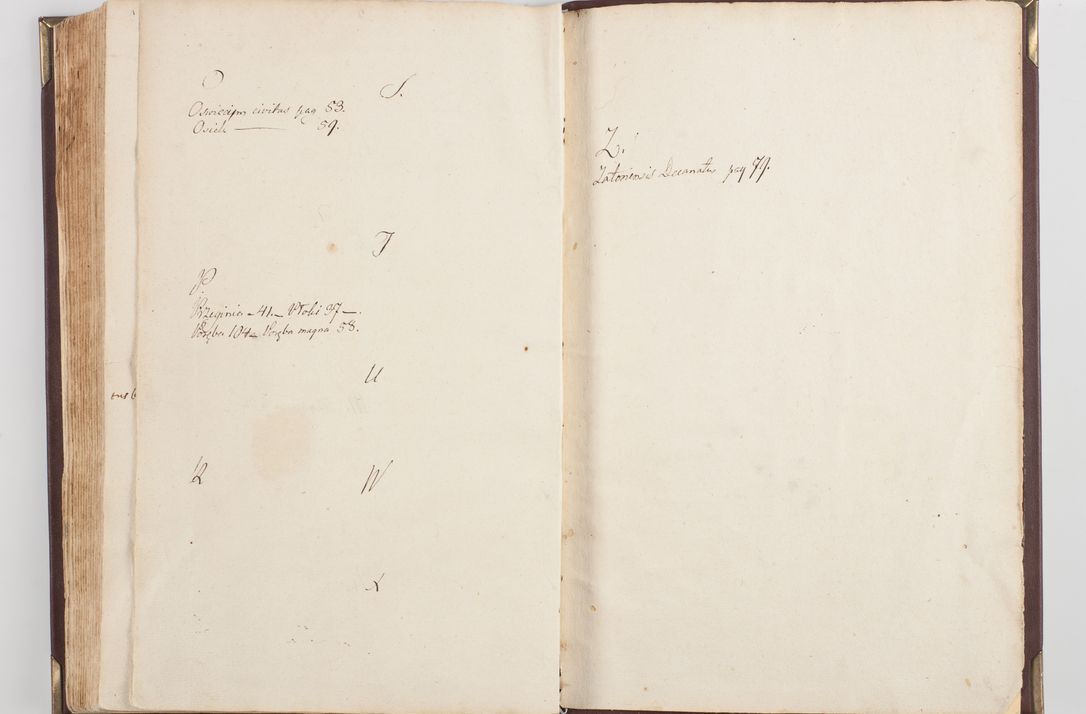 O
Oswiecim civitas pag 53.
Osiek ——— 59.
P
Przeginia – 41. – Ptoki 37 –.
Poręba 104 – Poręba magna 58.
R
S.
T
U
W
X
Z.
Zatoriensis Decanatus pag 79.